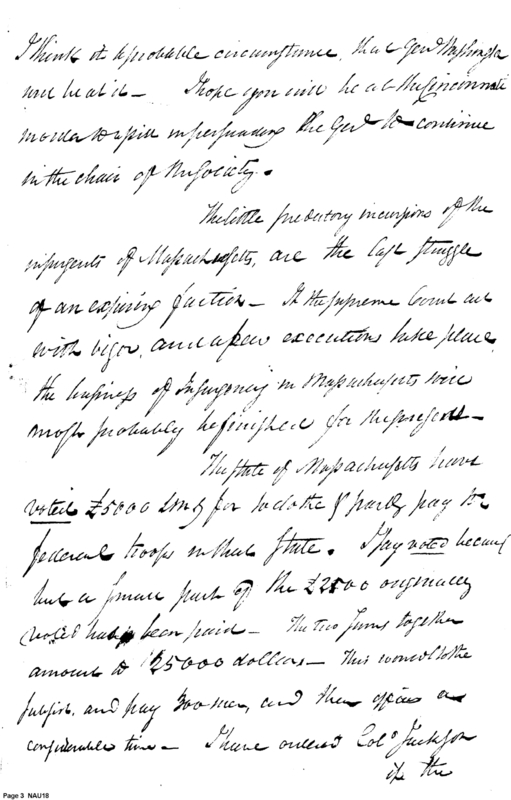 I think it a probable circumstance, that Genl Washington
will be at it— I hope you will be at the Cincinnati
in order to assist in persuading the Genl to continue
in the chair of the Society.
The little predatory incursions of the
insurgents of Massachusetts, are the last struggle
of an expiring faction— If the supreme Court act
with vigor, and a few executions take place,
the business of Insurgency in Massachusetts will
most probably be finished for the present—
The State of Massachusetts have
voted £5000 for to clothe & partly pay the
federal troops in that State. I say voted because
but a small part of the £2500 originally
voted has been paid— The two sums together
amount to 25000 dollars— This would clothe
subsist, and pay 300 men, and their officers a
considerable time— I have ordered Colo Jackson
if the
Page 3 NAU18